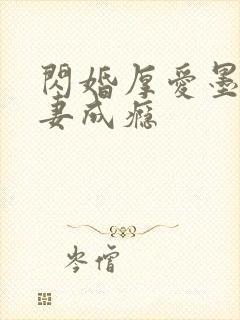 閃婚厚愛墨
妻成癮
岑僧